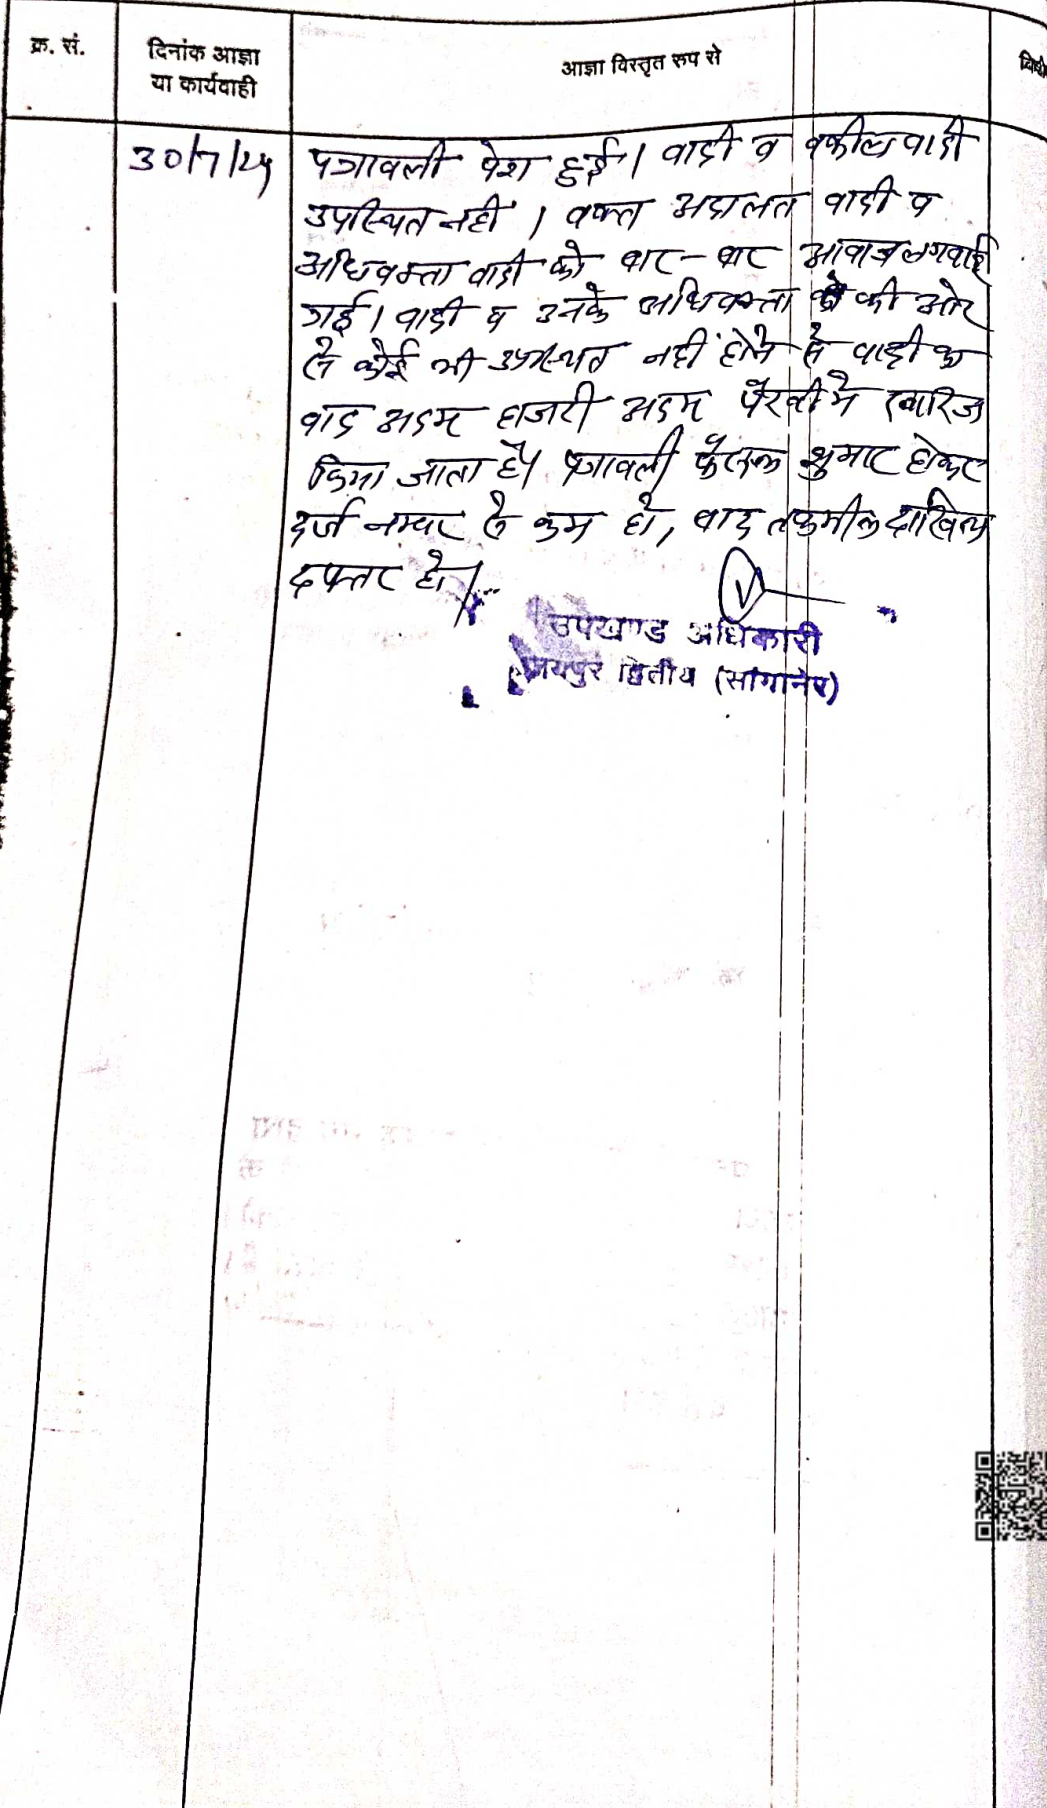 क्र. सं.
दिनांक आज्ञा
या कार्यवाही
आज्ञा विस्तृत रुप से
30/7/24
पत्रावली पेश हुई। वादी व वकील वादी
उपस्थित नहीं। वक्त अदालत वादी व
अधिवक्ता वादी को बार-बार आवाज लगवाई
गई। वादी व उनके अधिवक्ता की ओर
से कोई भी उपस्थित नहीं होने से वादी का
वाद अदम हाजरी अदम पैरवी में खारिज
किया जाता है। पत्रावली फैसल शुमार होकर
दर्ज नम्बर से कम हो, बाद तकमील दाखिल
दफ्तर हो।
उपखण्ड अधिकारी
जयपुर द्वितीय (सांगानेर)